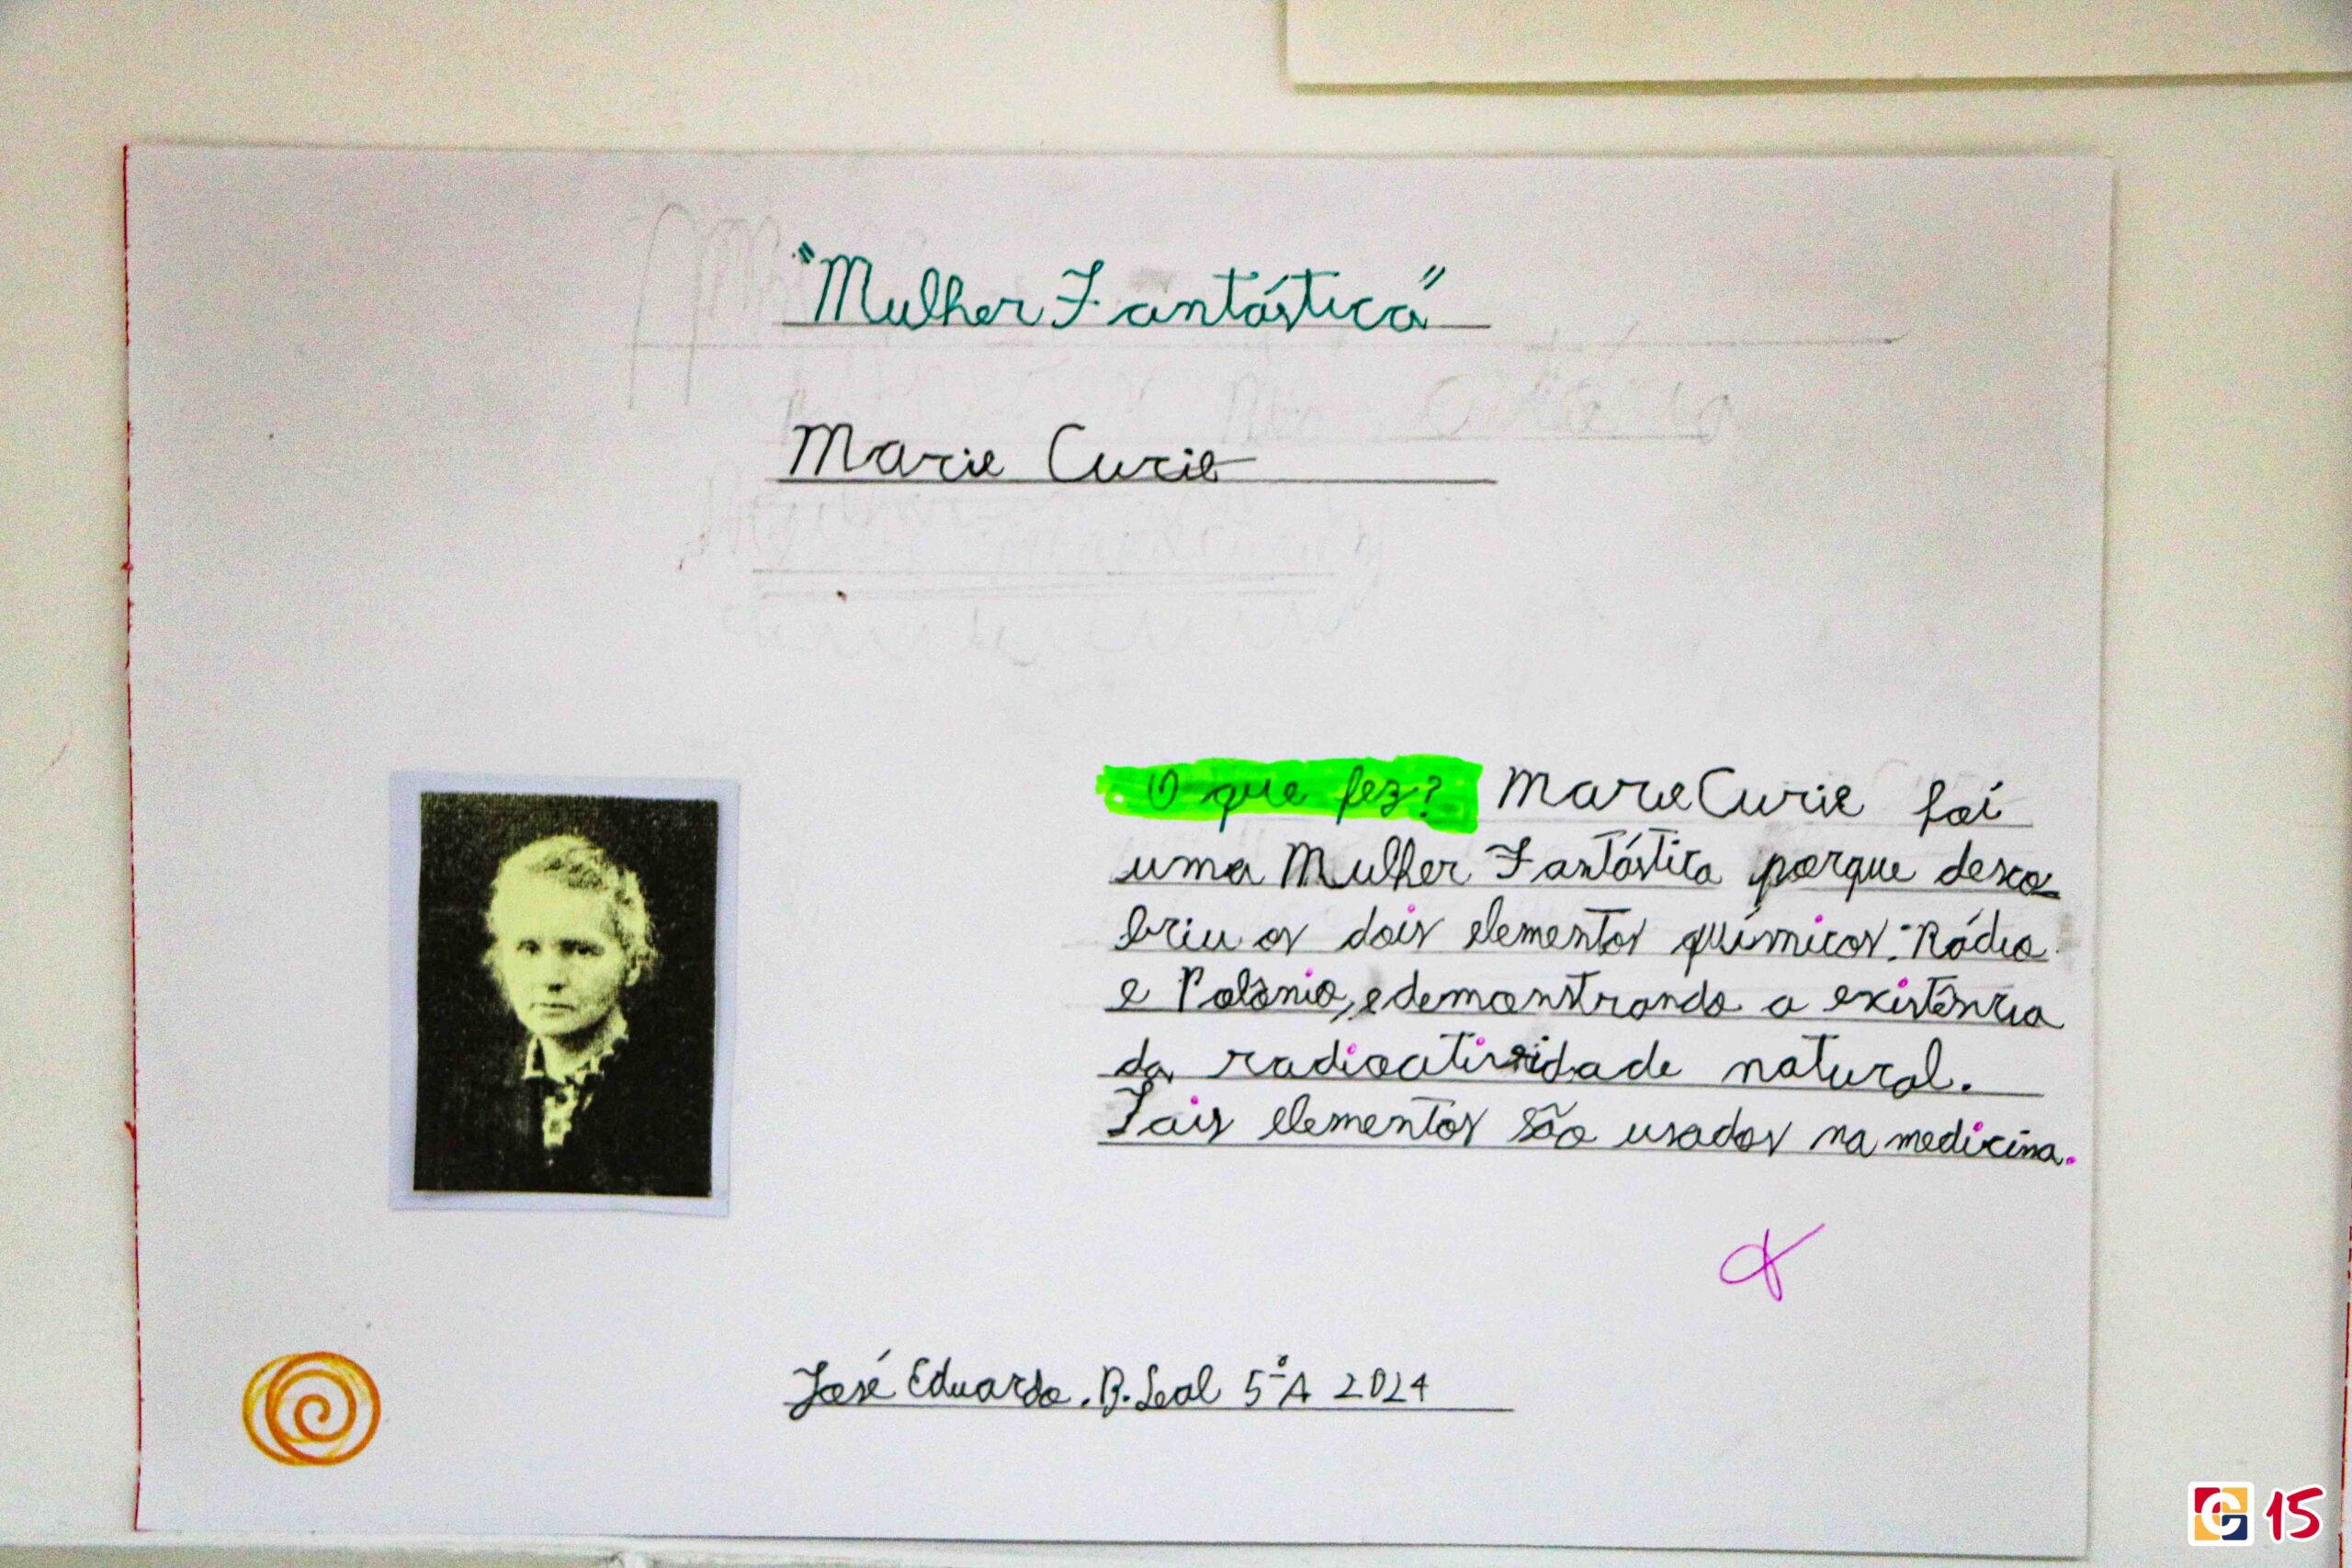 "Mulher Fantástica"
Marie Curie
O que fez? Marie Curie foi
uma Mulher Fantástica porque desco
briu os dois elementos químicos: Rádio
e Polônio, e demonstrando a existência
da radioatividade natural.
Tais elementos são usados na medicina.
José Eduardo. B. Leal 5ºA 2024
15